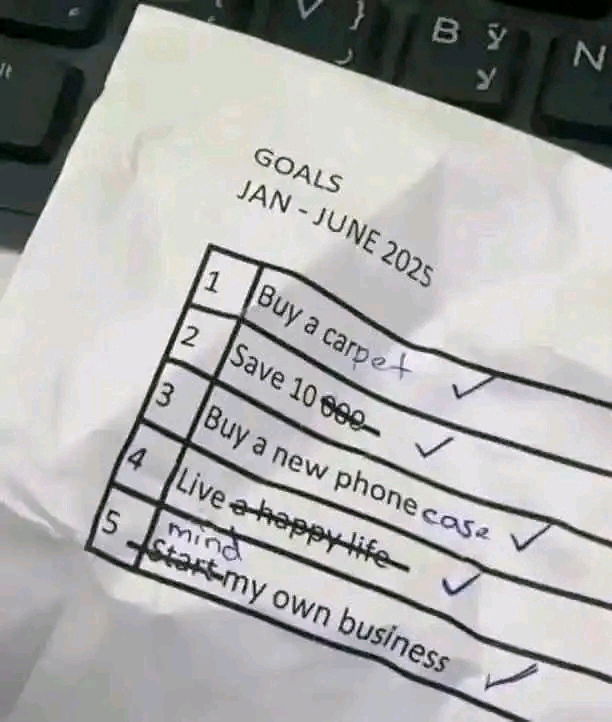 B ў
у
N
GOALS
JAN - JUNE 2025
1 Buy a carpet ✓
2 Save 10 000 ✓
3 Buy a new phone case ✓
4 Live a happy life ✓
mind
5 Start my own business ✓